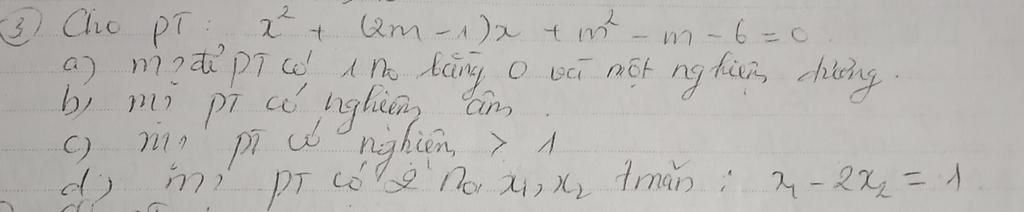 ③ Cho PT : x² + (2m - 1)x + m² - m - 6 = 0.
a) m? để PT có 1 no bằng 0 và một nghiệm dương.
b) m? PT có nghiệm âm.
c) m? PT có nghiệm > 1
d) m? PT có 2 no x₁, x₂ tmãn : x₁ - 2x₂ = 1